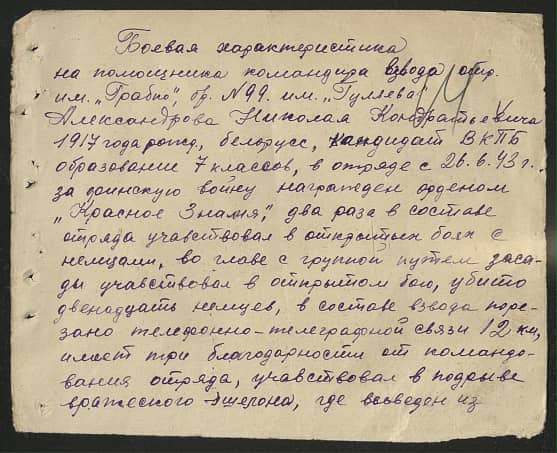 Боевая характеристика
на помощника командира взвода отр.
им. „Грабко", бр. N99. им. „Гуляева"
Александрова Николая Кондратьевича
1917 года рожд, белорусс, кандидат ВКПБ
образовании 7 классов, в отряде с 26.6.43 г.
за финскую войну награжден орденом
„Красное Знамя", два раза в составе
отряда учавствовал в открытых боях с
немцами, во главе с группой путем заса-
ды учавствовал в открытом бою, убито
двенадцать немцев, в составе взвода поре-
зано телефонно-телеграфной связи 12 км,
имеет три благодарности от командо-
вания отряда, учавствовал в подрыве
вражеского эшелона, где выведен из